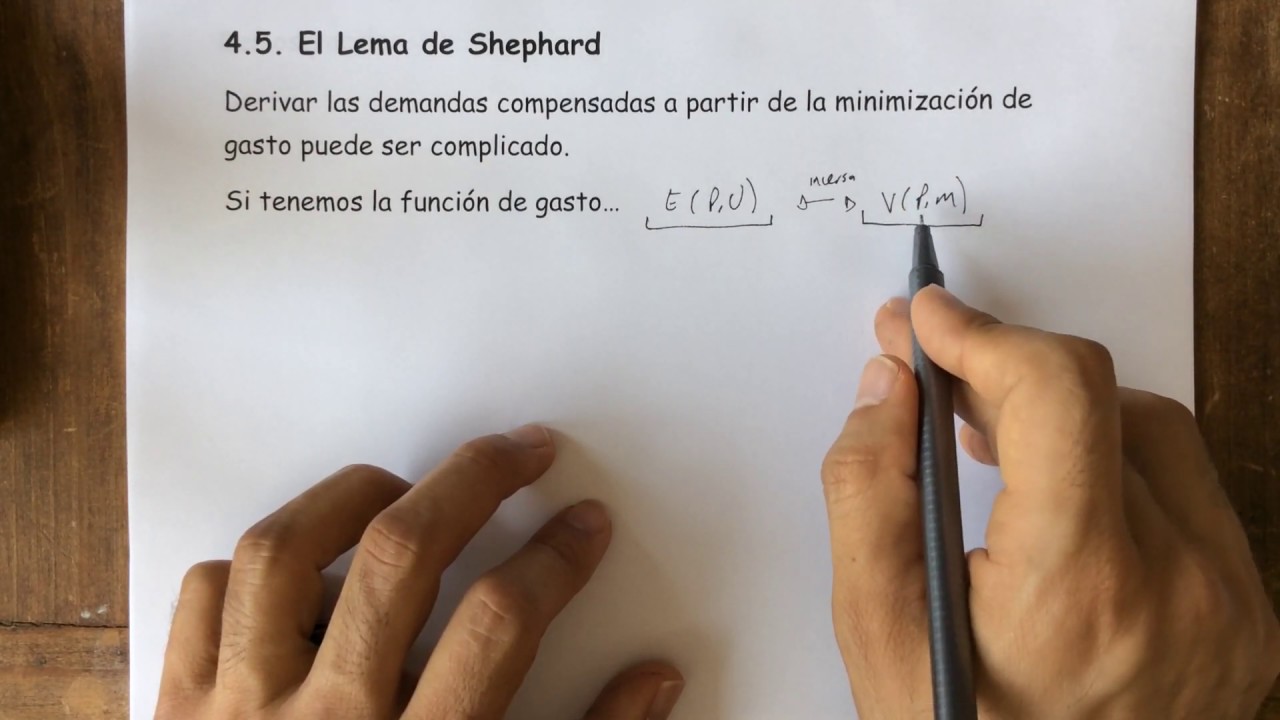 4.5. El Lema de Shephard
Derivar las demandas compensadas a partir de la minimización de
gasto puede ser complicado.
inversa
Si tenemos la función de gasto... E(P,U) V(P,m)